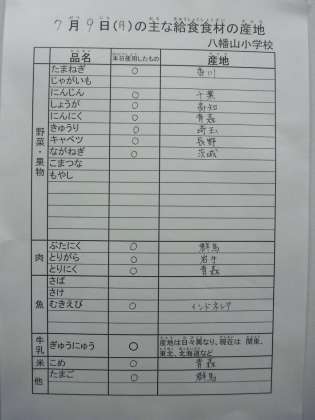 7月9日(月)の主な給食食材の産地
八幡山小学校
品名 本日使用したもの 産地
野菜・果物
たまねぎ ○ 香川
じゃがいも
にんじん ○ 千葉
しょうが ○ 高知
にんにく ○ 青森
きゅうり ○ 埼玉
キャベツ ○ 長野
ながねぎ ○ 茨城
こまつな
もやし
肉
ぶたにく ○ 群馬
とりがら ○ 岩手
とりにく ○ 青森
魚
さば
さけ
むきえび ○ インドネシア
牛乳 ぎゅうにゅう ○ 産地は日々異なり、現在は 関東、
東北、北海道など
米 こめ ○ 青森
他 たまご ○ 群馬